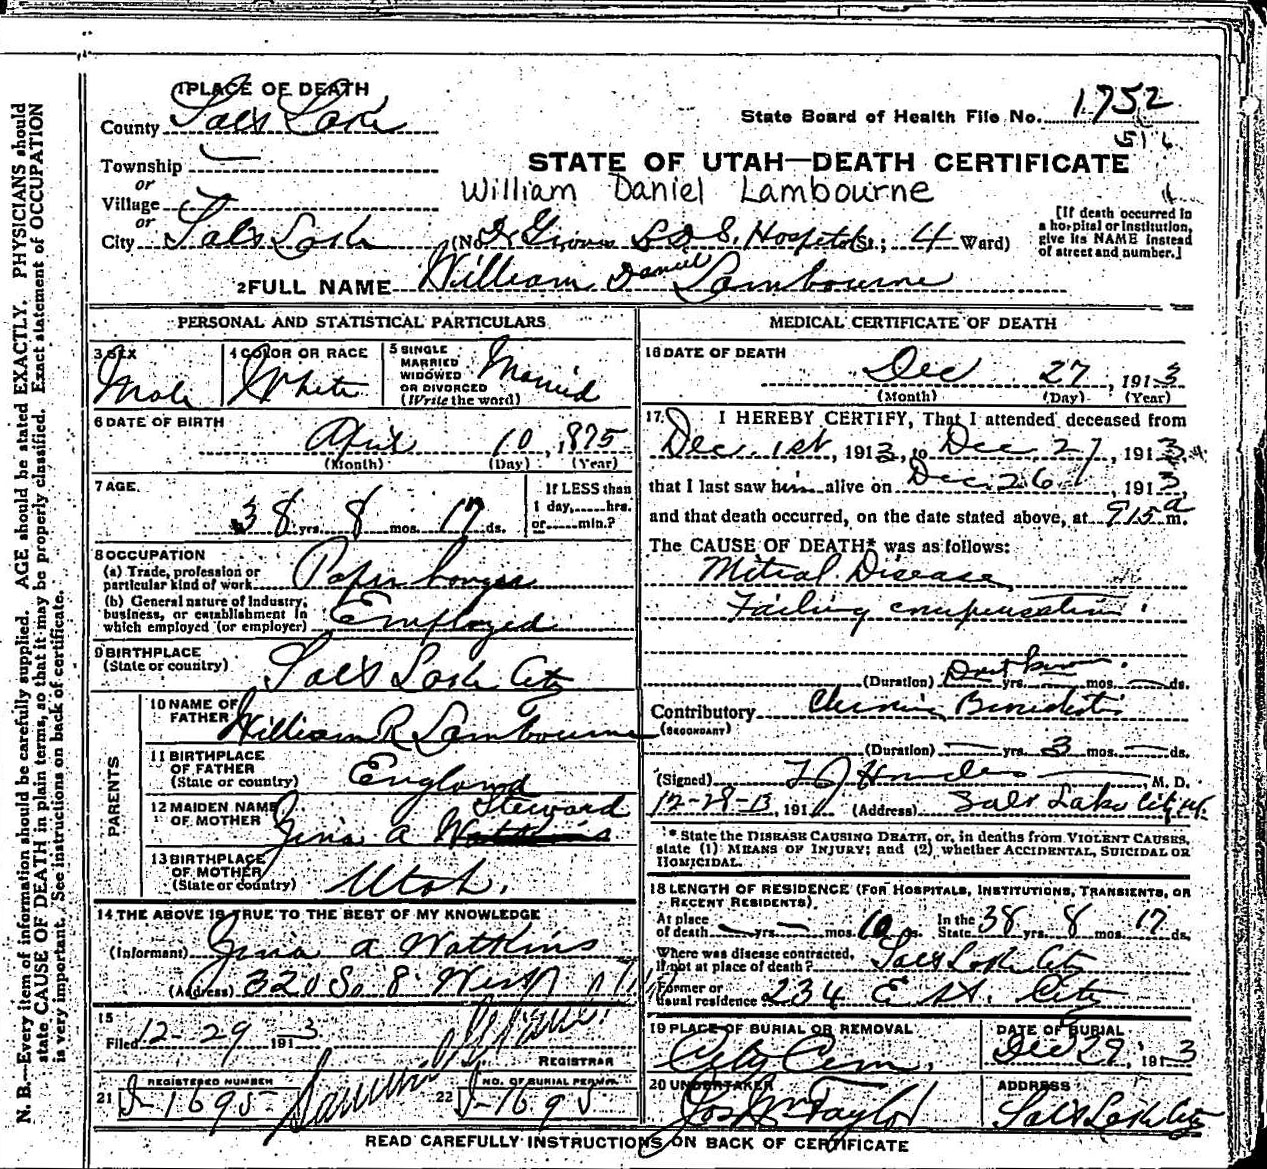 1 PLACE OF DEATH
County Salt Lake
State Board of Health File No. 1752
516
Township
or
Village
or
City Salt Lake
STATE OF UTAH—DEATH CERTIFICATE
William Daniel Lambourne
(No. Dr Groves L D S. Hospital St.; 4 Ward)
[If death occurred in
a hospital or institution,
give its NAME instead
of street and number.]
2 FULL NAME William Daniel Lambourne
PERSONAL AND STATISTICAL PARTICULARS
3 SEX
Male
4 COLOR OR RACE
White
5 SINGLE
MARRIED
WIDOWED
OR DIVORCED
(Write the word)
Married
6 DATE OF BIRTH
April 10, 1875
(Month) (Day) (Year)
7 AGE
38 yrs. 8 mos. 17 ds.
If LESS than
1 day,......hrs.
or......min.?
8 OCCUPATION
(a) Trade, profession or
particular kind of work Paper hanger
(b) General nature of Industry,
business, or establishment in
which employed (or employer) Employed
9 BIRTHPLACE
(State or country) Salt Lake City
PARENTS
10 NAME OF
FATHER William R Lambourne
11 BIRTHPLACE
OF FATHER
(State or country) England
12 MAIDEN NAME
OF MOTHER Zina A Watkins Steward
13 BIRTHPLACE
OF MOTHER
(State or country) Utah.
14 THE ABOVE IS TRUE TO THE BEST OF MY KNOWLEDGE
(Informant) Zina A Watkins
(Address) 320 So 8 West
15
Filed 12-29 1913
REGISTRAR
REGISTERED NUMBER
21 J-1695
NO. OF BURIAL PERMIT
22 J-1695
MEDICAL CERTIFICATE OF DEATH
16 DATE OF DEATH
Dec 27, 1913
(Month) (Day) (Year)
17. I HEREBY CERTIFY, That I attended deceased from
Dec. 1st, 1913, to Dec. 27, 1913
that I last saw him alive on Dec. 26, 1913,
and that death occurred, on the date stated above, at 915 a m.
The CAUSE OF DEATH* was as follows:
Mitral Disease
Failing compensation.
(Duration) Dont know yrs. mos. ds.
Contributory
(SECONDARY)
(Duration) yrs. 3 mos. ds.
(Signed) M. D.
12-28-13, 191 (Address) Salt Lake City, Ut.
* State the DISEASE CAUSING DEATH, or, in deaths from VIOLENT CAUSES,
state (1) MEANS OF INJURY; and (2) whether ACCIDENTAL, SUICIDAL OR
HOMICIDAL.
18 LENGTH OF RESIDENCE (FOR HOSPITALS, INSTITUTIONS, TRANSIENTS, OR
RECENT RESIDENTS).
At place
of death yrs. mos. 10 ds. In the
State 38 yrs. 8 mos. 17 ds.
Where was disease contracted,
if not at place of death? Salt Lake City
Former or
usual residence 234 E St. City
19 PLACE OF BURIAL OR REMOVAL
City Cem.
DATE OF BURIAL
Dec 29, 1913
20 UNDERTAKER
Jos Wm Taylor
ADDRESS
Salt Lake City
READ CAREFULLY INSTRUCTIONS ON BACK OF CERTIFICATE
N. B.—Every item of information should be carefully supplied. AGE should be stated EXACTLY. PHYSICIANS should
state CAUSE OF DEATH in plain terms, so that it may be properly classified. Exact statement of OCCUPATION
is very important. See instructions on back of certificate.